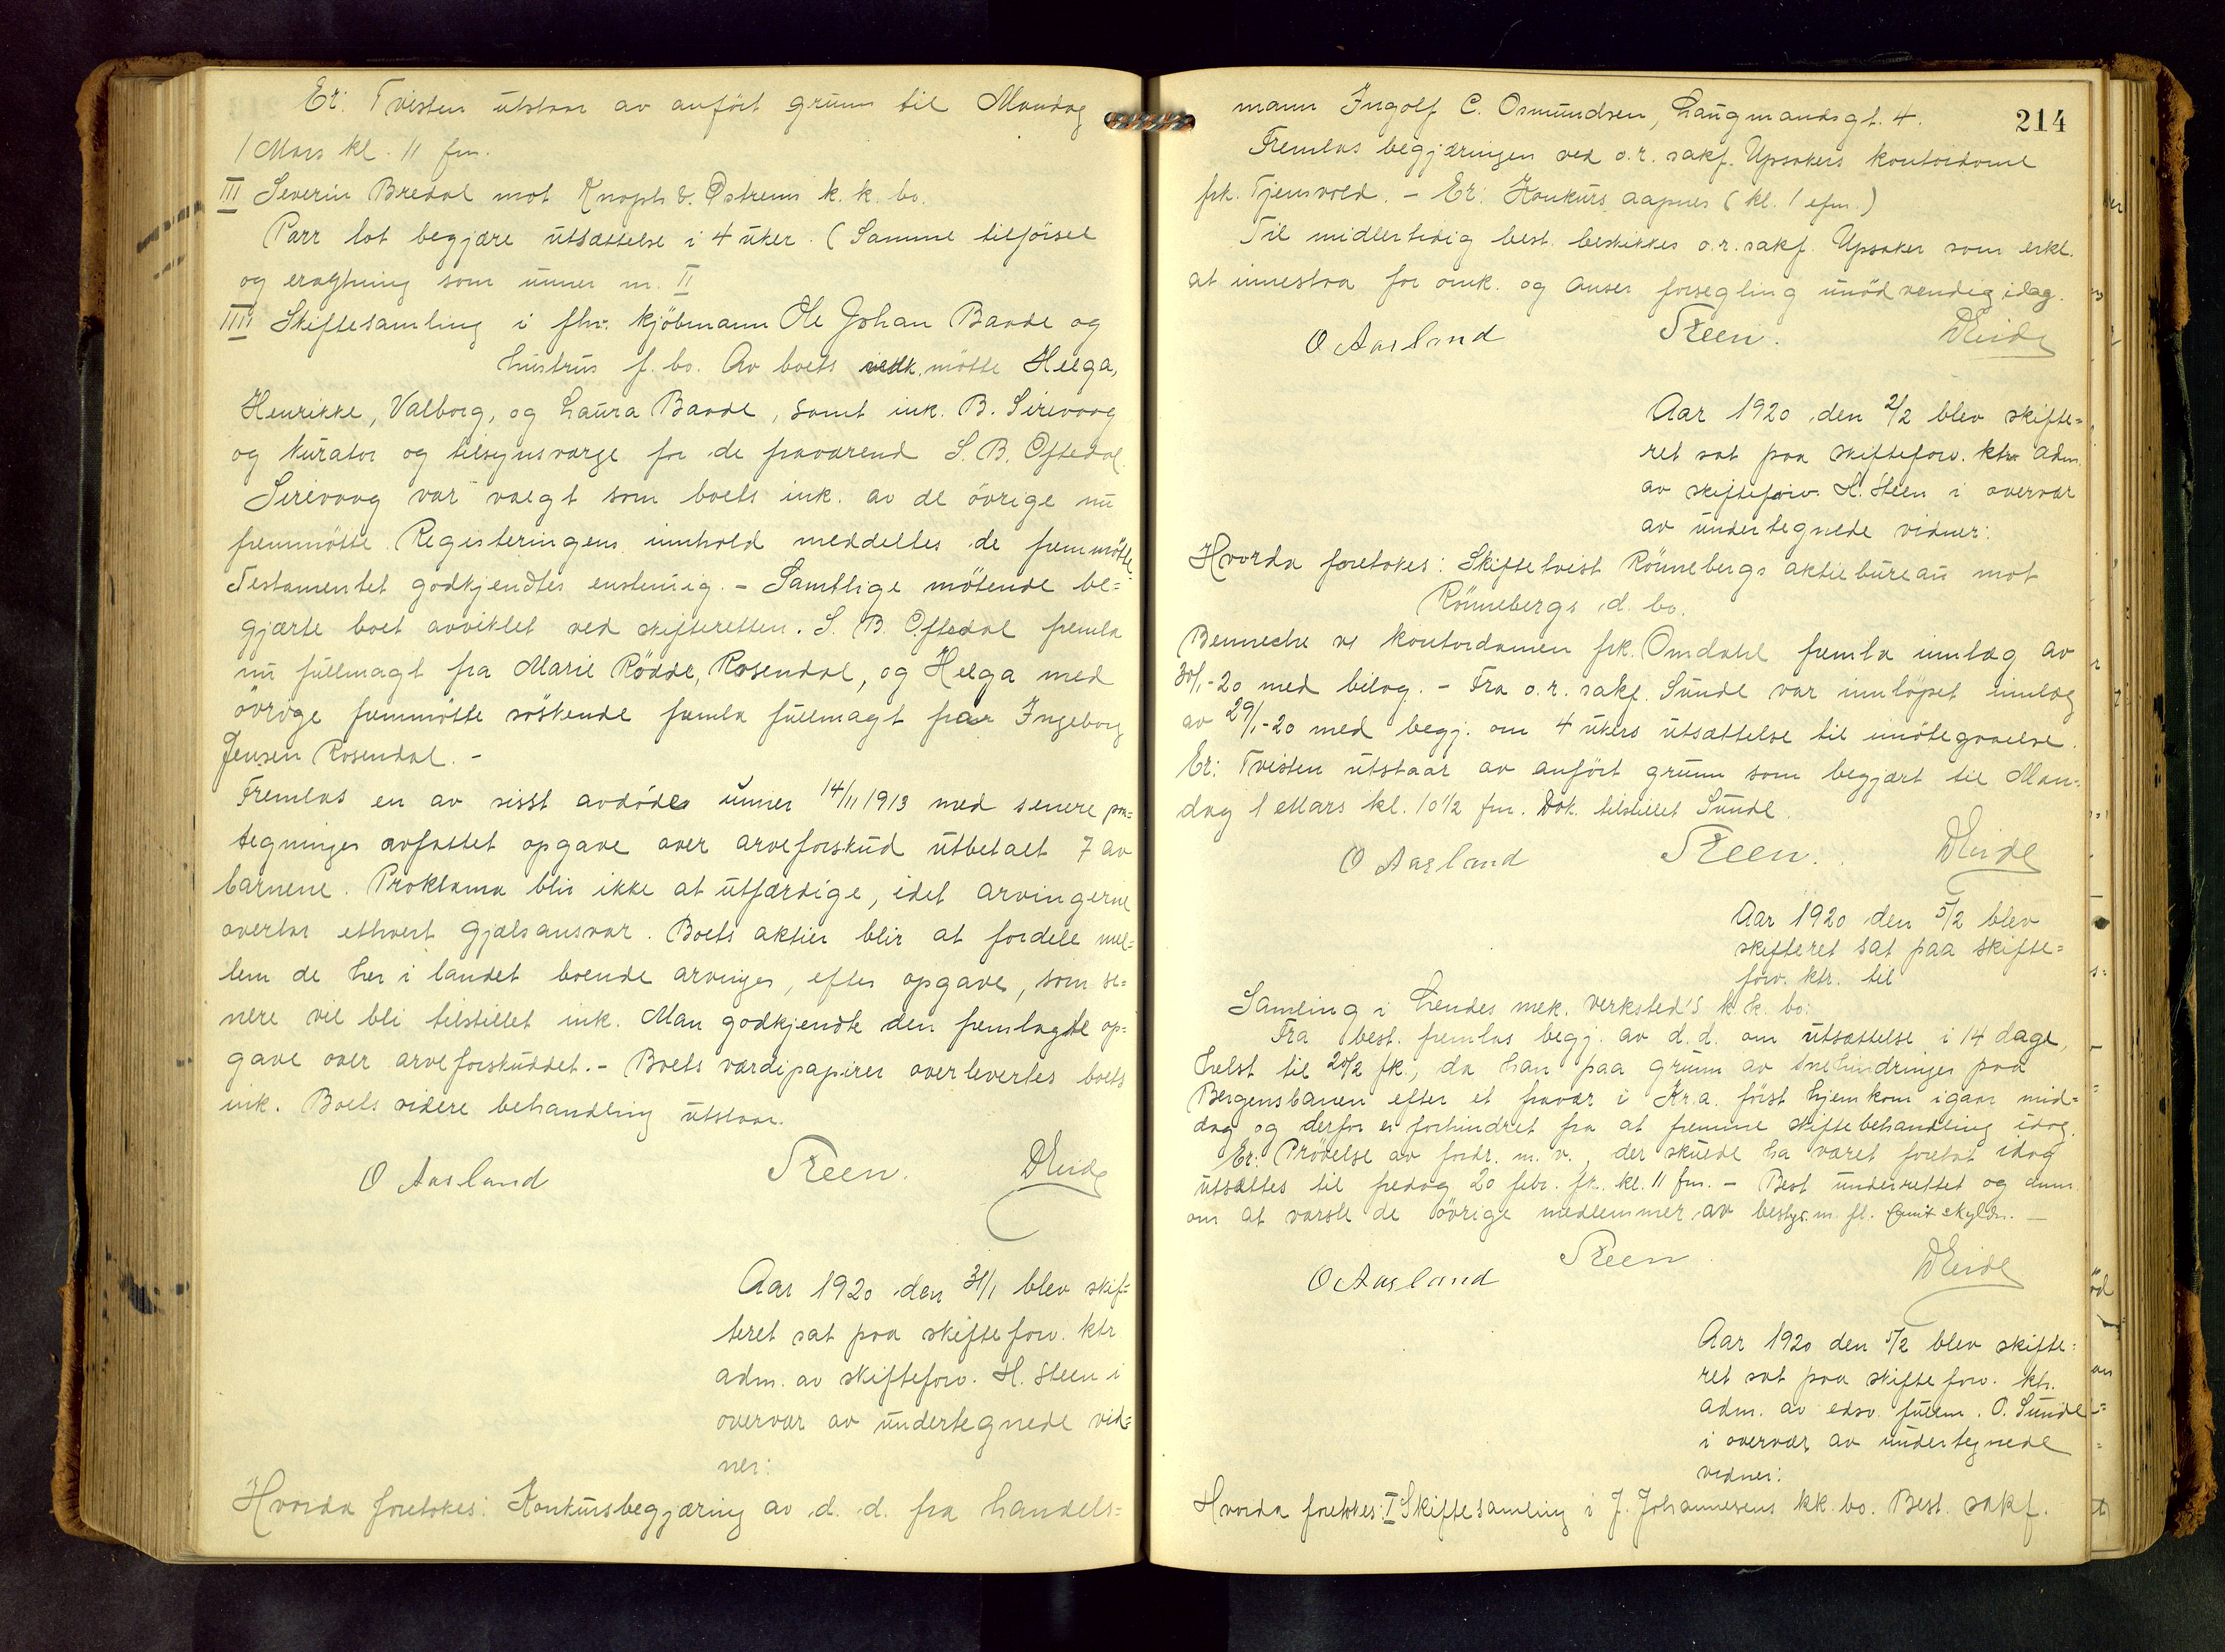 Er: Tvisten utstaar av anført grunn til Mandag
1 Mars kl. 11 fm.
III Severin Bredal mot Knoph & Østrems k. k. bo.
Parr lot begjære utsættelse i 4 uker. (Samme tilførsel
og eragtning som unner nr. II
IIII Skiftesamling i fhv. kjöbmann Ole Johan Baade og
hustrus f. bo. Av boets vedk. mötte Helga,
Henrikke, Valborg, og Laura Baade, samt ink. B. Sirevaag
og kurator og tilsynsværge for de fraværend S. B. Oftedal.
Sirevaag var valgt som boets ink. av de övrige nu
fremmötte. Registeringens innhold meddeltes de fremmötte.
Testamentet godkjendtes enstemig. - Samtlige mötende be=
gjærte boet avviklet ved skifteretten. S. B. Oftedal fremla
nu fullmagt fra Marie Rödde, Rosendal, og Helga med
övrige fremmötte söskende fremla fullmagt fra Ingeborg
Jensen Rosendal. -
Fremlas en av sisst avdödes unner 14/11 1913 med senere paa=
tegninger avfattet opgave over arveforskud utbetalt 7 av
barnene. Proklama blir ikke at utfærdige, idet arvingerne
overtar ethvert gjælsansvar. Boets aktier blir at fordele mel=
lem de her i landet boende arvinger, efter opgave, som se=
nere vil bli tilstillet ink. Man godkjendte den fremlagte op=
gave over arveforskuddet. - Boets værdipapirer overlevertes boets
ink. Boets videre behandling utstaar.
O Aasland Steen. D Eide
Aar 1920 den 31/1 blev skif=
teret sat paa skifteforv. ktr
adm. av skifteforv. H. Steen i
overvær av undertegnede vid=
ner:
Hvorda foretokes: Konkursbegjæring av d. d. fra handels=
214
mann Ingolf C. Osmundsen, Laugmandsgt. 4.
Fremlas begjæringen ved o.r. sakf. Upsakers kontordame
frk. Tjensvold. - Er: Konkurs aapnes (kl. 1 efm.)
Til midlertidig best. beskikkes o.r. sakf. Upsaker som erkl.
at innestaa for omk. og anser forsegling unödvendig idag.
O Aasland Steen. D Eide
Aar 1920 den 2/2 blev skifte=
ret sat paa skifteforv. ktr. adm.
av skifteforv. H. Steen i overvær
av undertegnede vidner:
Hvorda foretokes: Skiftetvist Rönnebergs aktiebureau mot
Rönnebergs d. bo.
Benneche ve kontordamen frk. Omdahl fremla innlæg av
30/1-20 med bilag. - Fra o.r. sakf. Sunde var innløpet innlæg
av 29/1-20 med begj. om 4 ukers utsættelse til imötegaaelse.
Er: Tvisten utstaar av anfört grunn som begjært til Man=
dag 1 Mars kl. 10 1/2 fm. Dok. tilstillet Sunde.
O Aasland Steen. D Eide
Aar 1920 den 5/2 blev
skifteret sat paa skifte=
forv. ktr. til
Samling i Lendes mek. verksted's k. k. bo:
Fra best. fremlas begj. av d. d. om utsættelse i 14 dage,
helst til 20/2 fk., da han paa grunn av snehindringer paa
Bergensbanen efter et fravær i Kr.a. först hjemkom igaar mid=
dag og derfor er forhindret fra at fremme skiftebehandling idag.
Er: Prövelse av fordr. m. v., der skulde ha været foretat idag
utsættes til fredag 20 febr. fk. kl. 11 fm. - Best underrettet og anm.
om at varsle de övrige medlemmer av bestyr. m. fl. samt skyldn. -
O Aasland Steen D Eide
Aar 1920 den 5/2 blev skifte=
ret sat paa skifteforv. ktr.
adm. av edsv. fullm. O. Sunde
i overvær av undertegnede
vidner:
Hvorda foretokes: I Skiftesamling i J. Johannesens kk. bo. Best. sakf.